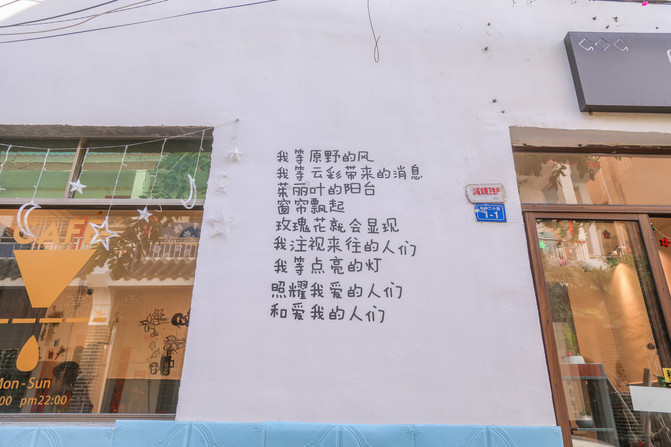 我等原野的风
我等云彩带来的消息
茱丽叶的阳台
窗帘飘起
玫瑰花就会显现
我注视来往的人们
我等点亮的灯
照耀我爱的人们
和爱我的人们
1-1
CAFE
Mon-Sun
:00 pm22:00